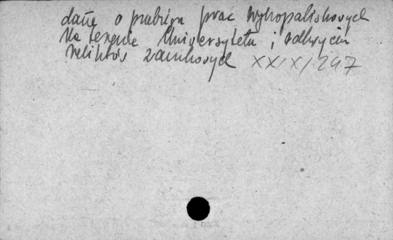 dane o przebiegu prac wykopaliskowych
na terenie Uniwersytetu i odkryciu
reliktów zamkowych XXIX/247